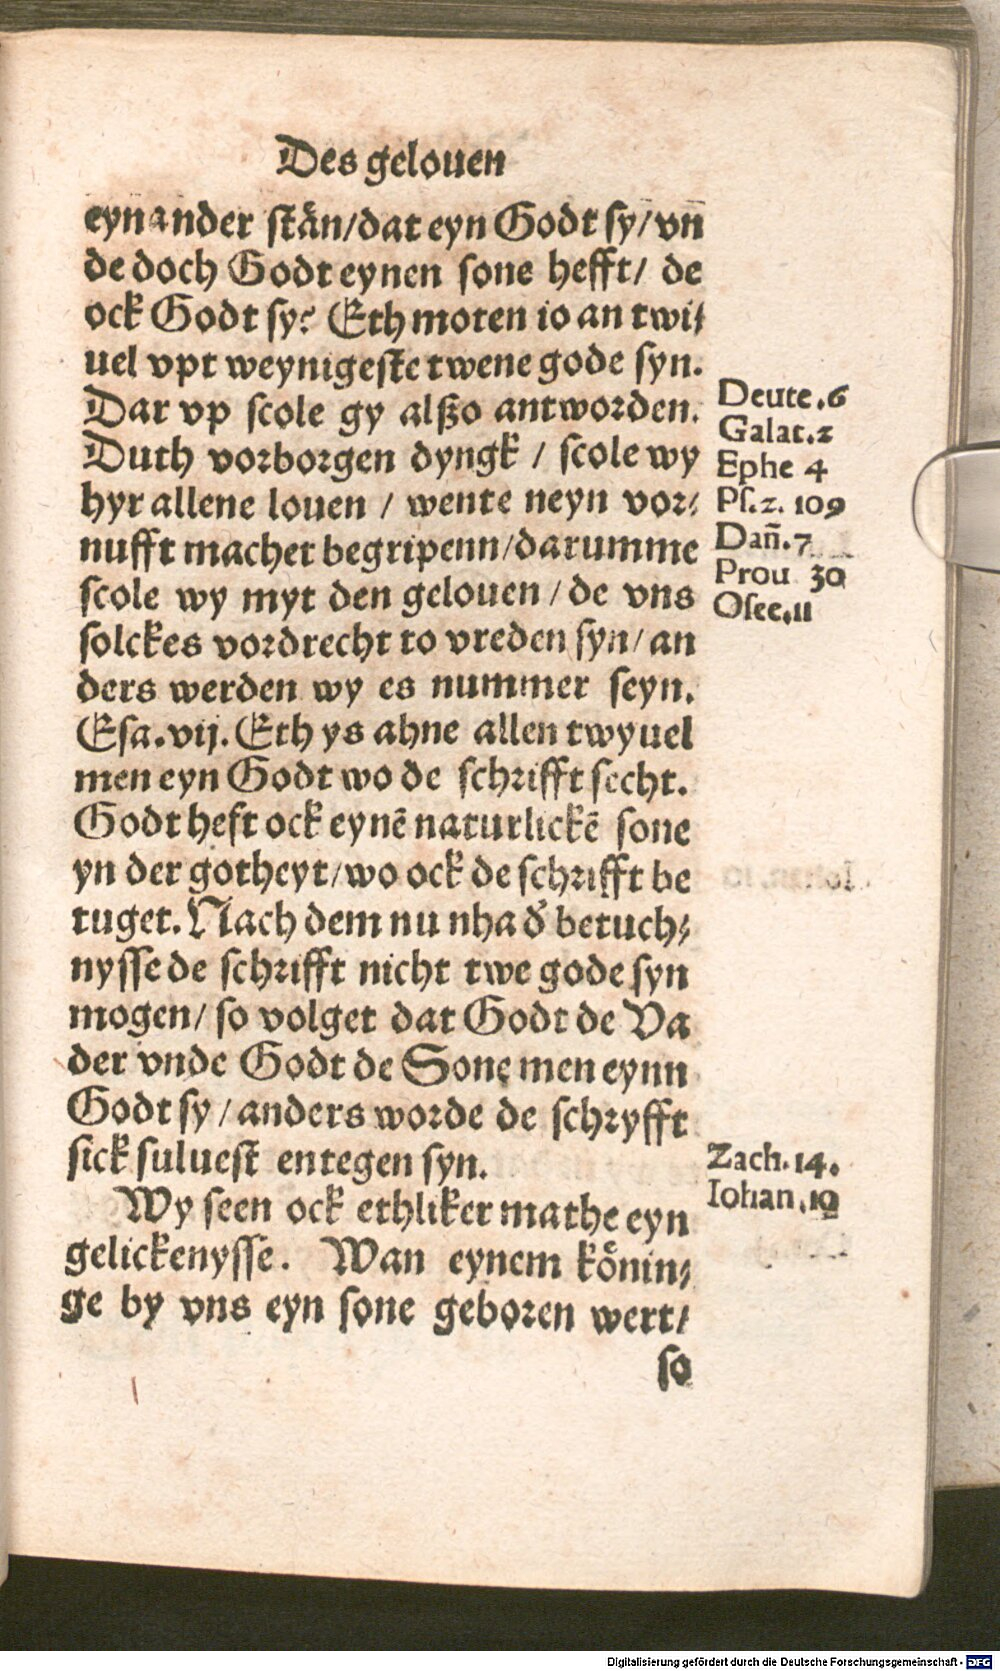 Des gelouen
eynander stån/dat eyn Godt sy/vn̄
de doch Godt eynen sone hefft/ de
ock Godt sy? Eth moten io an twi⸗
uel vpt weynigeste twene gode syn.
Dar vp scole gy alßo antworden.
Duth vorborgen dyngk / scole wy
hyr allene louen / wente neyn vor⸗
nufft machet begripenn/darumme
scole wy myt den gelouen / de vns
solckes vordrecht to vreden syn/ an
ders werden wy es nummer seyn.
Esa.vij. Eth ys ahne allen twyuel
men eyn Godt wo de schrifft secht.
Godt heft ock eynē naturlickē sone
yn der gotheyt/wo ock de schrifft be
tuget. Nach dem nu nha d᷑ betuch⸗
nysse de schrifft nicht twe gode syn
mogen/ so volget dat Godt de Va
der vnde Godt de Sone men eynn
Godt sy / anders worde de schryfft
sick suluest entegen syn.
Wy seen ock ethliker mathe eyn
gelickenysse. Wan eynem kȯnin⸗
ge by vns eyn sone geboren wert/
so
Deute.6
Galat.2
Ephe 4
Ps.2. 109
Dan̄.7
Prou 30
Osee.11
Zach.14.
Iohan.10
Digitalisierung gefördert durch die Deutsche Forschungsgemeinschaft - DFG